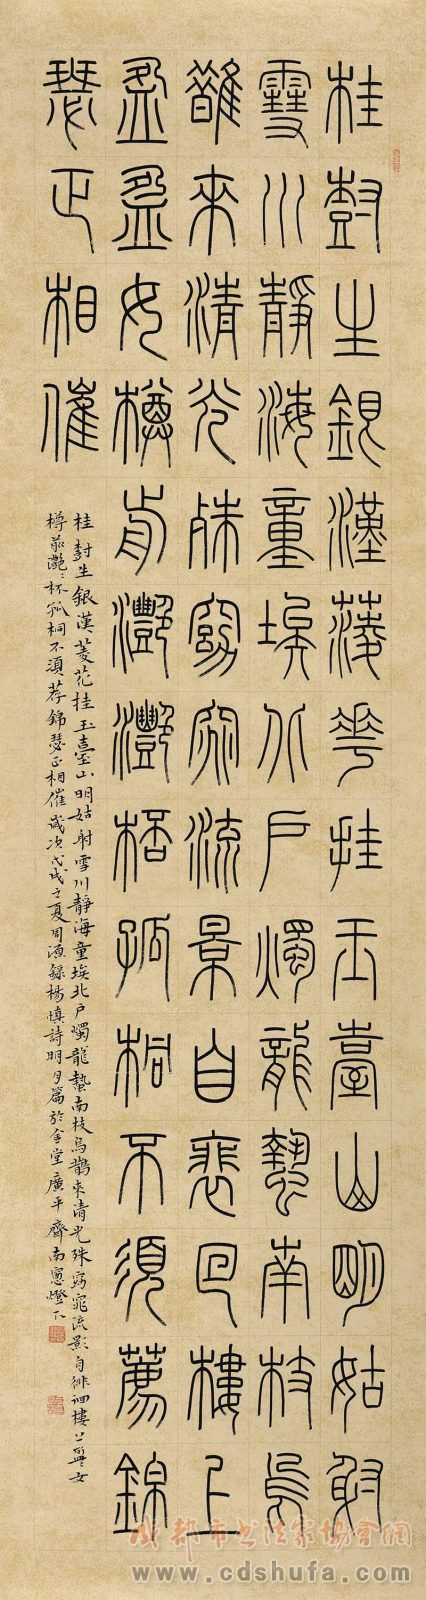 桂尌生銀漢蔆華挂玉臺山明姑射
雪川靜海童埃北戶燭龍蟄南枝烏
鵲來清光殊窈窕流景自裵回樓上
盈盈女樽前灩灩桮孤桐不須薦錦
瑟正相催
桂尌生銀漢菱花挂玉臺山明姑射雪川靜海童埃北戶燭龍蟄南枝烏鵲來清光殊窈窕流影自徘徊樓上盈盈女
樽前艷〻杯孤桐不須荐錦瑟正相催歲次戊戌之夏周漁錄楊慎詩明月篇於金堂廣平齊南窗燈下
成都市书法家協會網
www.cdshufa.com